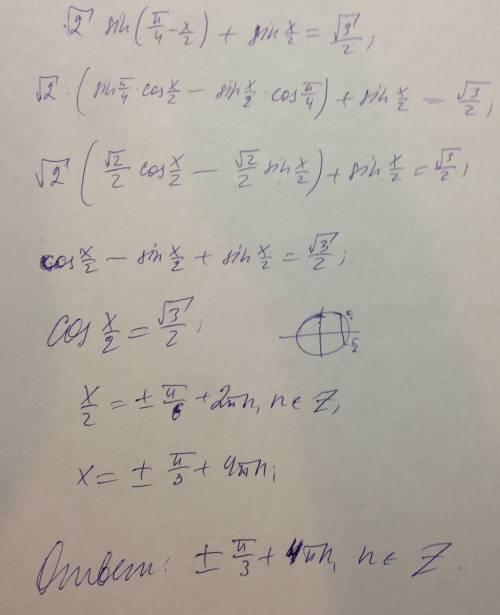 √2 sin(π/4 - x/2) + sin x/2 = √3/2;
√2 · (sin π/4 · cos x/2 - sin x/2 · cos π/4) + sin x/2 = √3/2;
√2 (√2/2 cos x/2 - √2/2 sin x/2) + sin x/2 = √3/2;
cos x/2 - sin x/2 + sin x/2 = √3/2;
cos x/2 = √3/2;
x/2 = ± π/6 + 2πn, n ∈ Z;
x = ± π/3 + 4πn;
Ответ: ± π/3 + 4πn, n ∈ Z.